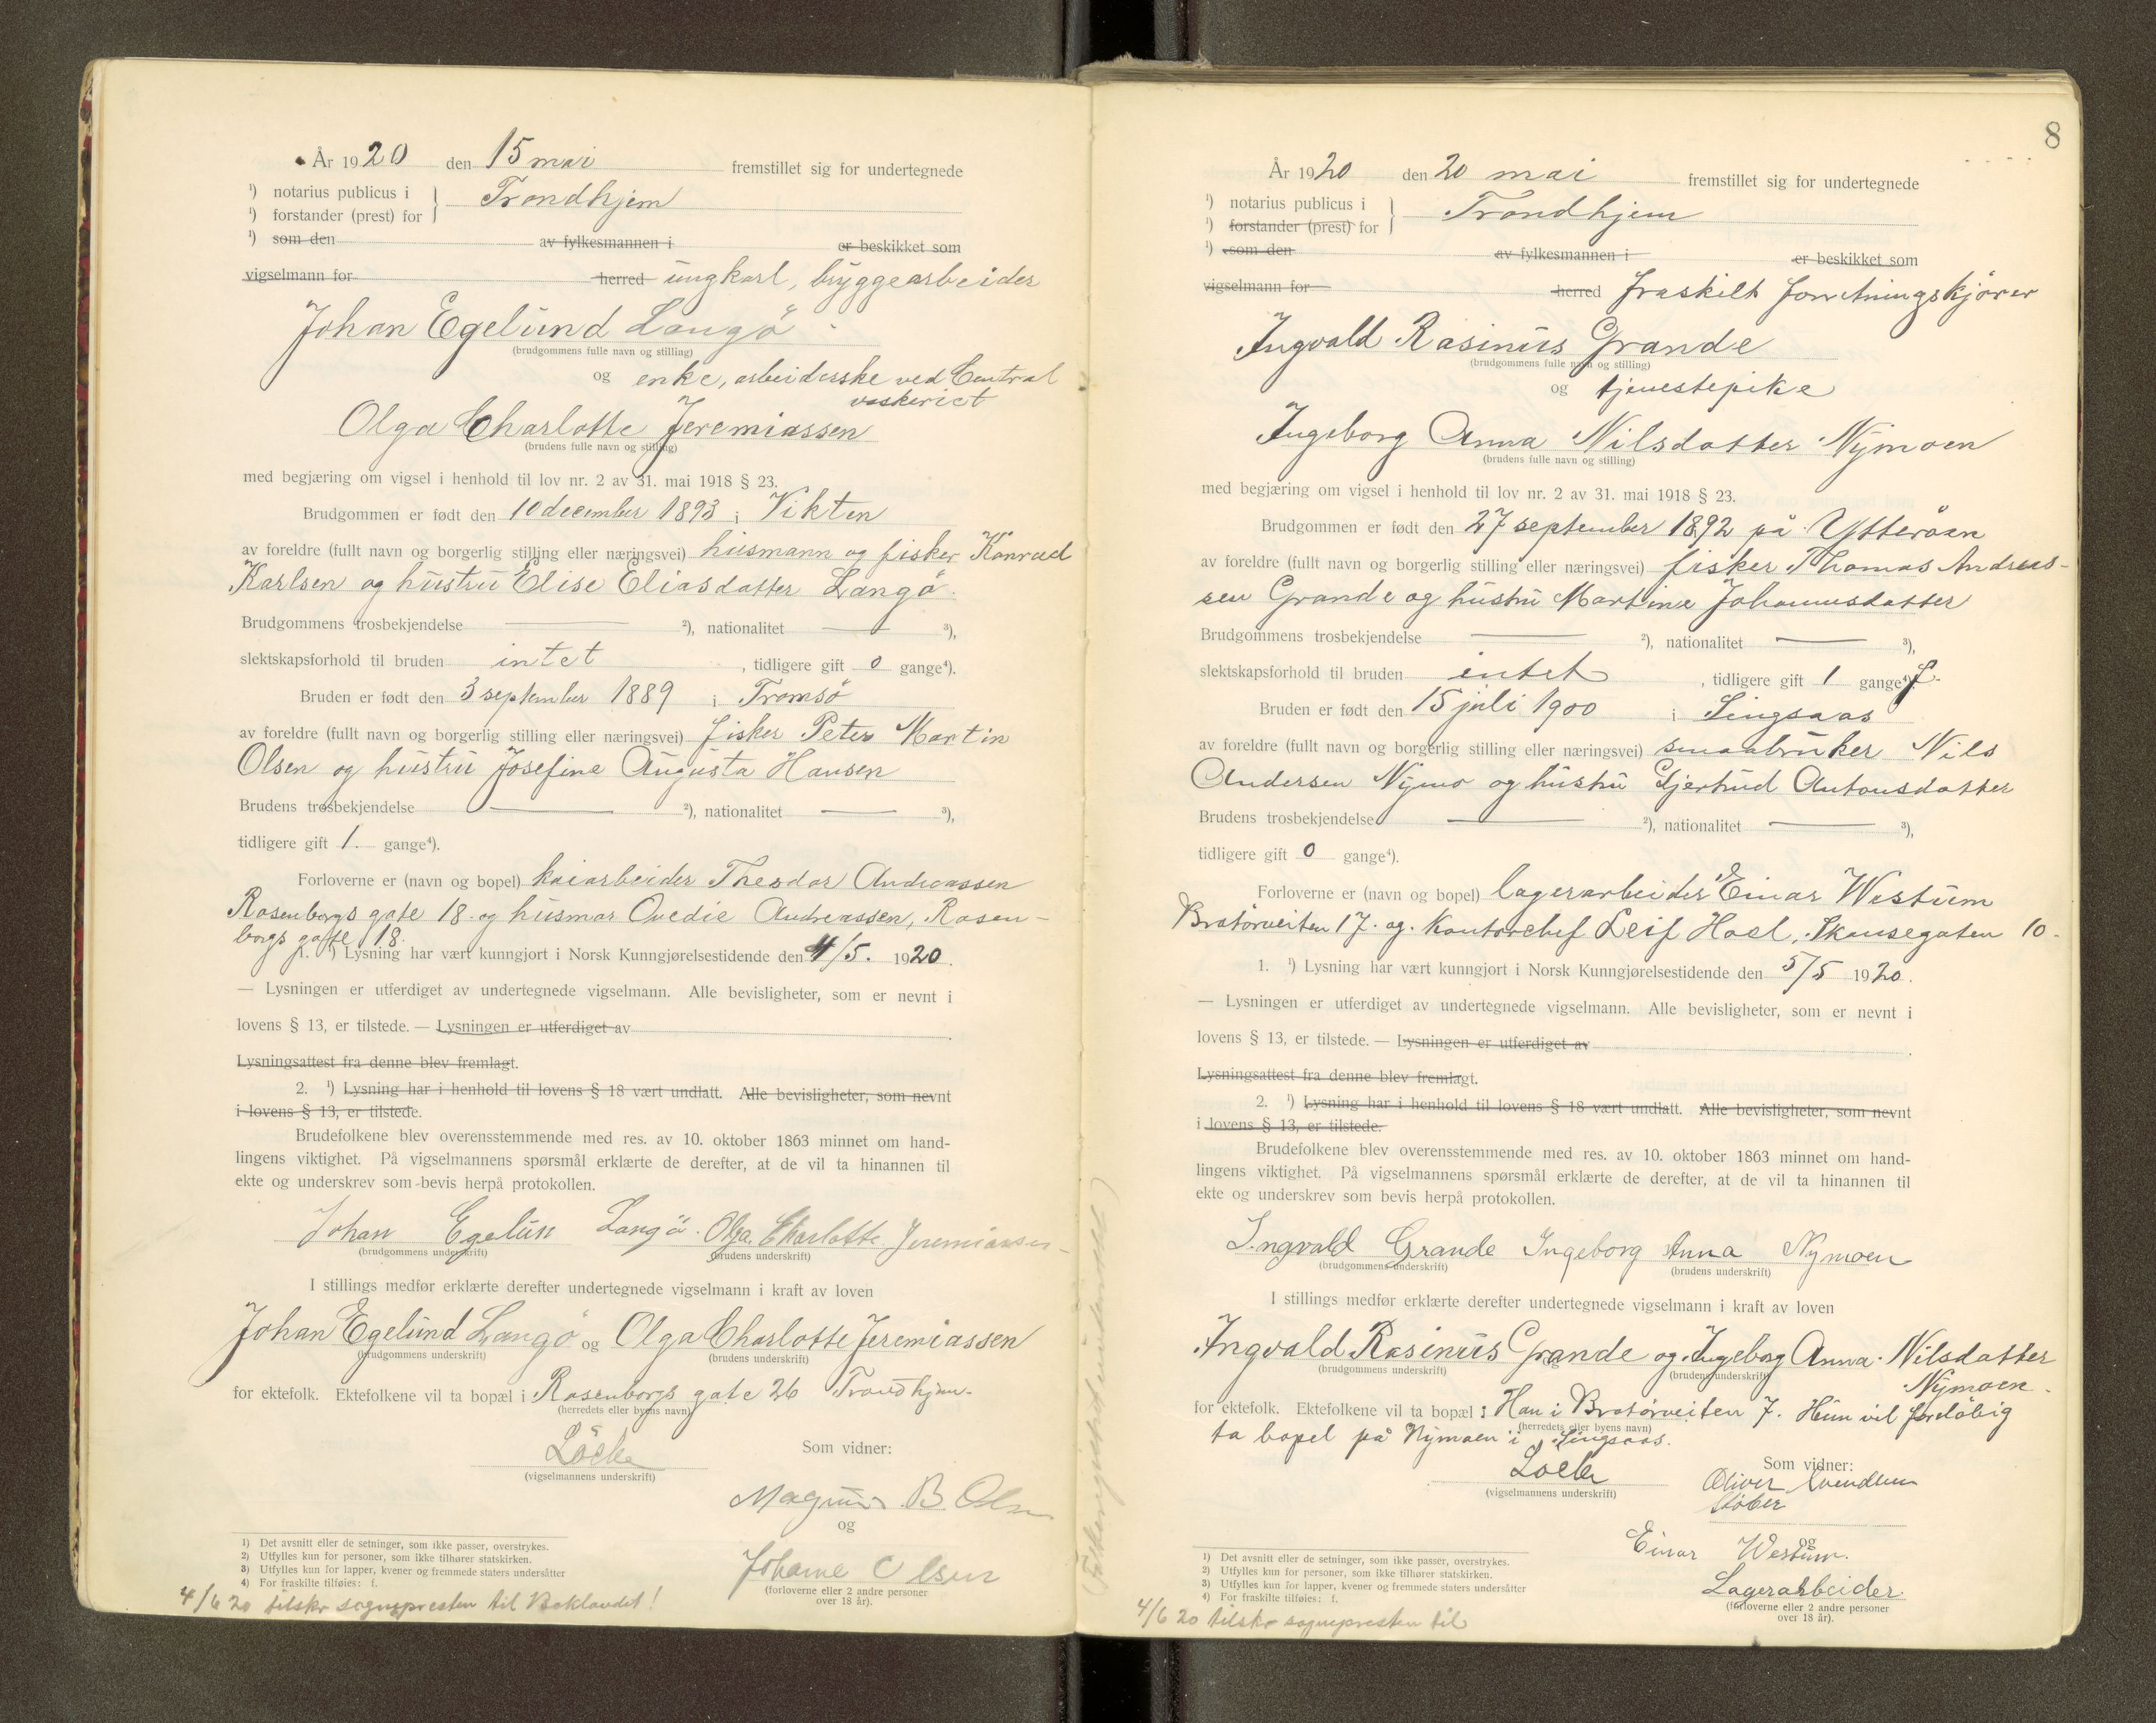 År 1920 den 15 mai fremstillet sig for undertegnede
¹) notarius publicus i
¹) forstander (prest) for } Trondhjem
¹) som den av fylkesmannen i er beskikket som
vigselmann for herred ungkarl, bryggearbeider
Johan Egelund Langö
(brudgommens fulle navn og stilling)
og enke, arbeiderske ved Central
vaskeriet
Olga Charlotte Jeremiassen
(brudens fulle navn og stilling)
med begjæring om vigsel i henhold til lov nr. 2 av 31. mai 1918 § 23.
Brudgommen er født den 10 december 1893 i Vikten
av foreldre (fullt navn og borgerlig stilling eller næringsvei) husmann og fisker Konrad
Karlsen og hustru Elise Eliasdatter Langö.
Brudgommens trosbekjendelse — ²), nationalitet — ³),
slektskapsforhold til bruden intet, tidligere gift 0 gange⁴).
Bruden er født den 3 september 1889 i Tromsö
av foreldre (fullt navn og borgerlig stilling eller næringsvei) fisker Peter Martin
Olsen og hustru Josefine Augusta Hansen
Brudens trosbekjendelse — ²), nationalitet — ³),
tidligere gift 1. gange⁴).
Forloverne er (navn og bopel) kaiarbeider Theodor Andreassen
Rosenborgs gate 18. og husmor Ovedie Andreassen, Rosen-
borgs gate 18.
1. ¹) Lysning har vært kunngjort i Norsk Kunngjørelsestidende den 4/5. 1920.
— Lysningen er utferdiget av undertegnede vigselmann. Alle bevisligheter, som er nevnt i
lovens § 13, er tilstede. — Lysningen er utferdiget av
Lysningsattest fra denne blev fremlagt.
2. ¹) Lysning har i henhold til lovens § 18 vært undlatt. Alle bevisligheter, som nevnt
i lovens § 13, er tilstede.
Brudefolkene blev overensstemmende med res. av 10. oktober 1863 minnet om hand-
lingens viktighet. På vigselmannens spørsmål erklærte de derefter, at de vil ta hinannen til
ekte og underskrev som bevis herpå protokollen.
Johan Egelün Langö. Olga. Charlotte Jeremiassen
(brudgommens underskrift) (brudens underskrift)
I stillings medfør erklærte derefter undertegnede vigselmann i kraft av loven
Johan Egelund Langö og Olga Charlotte Jeremiassen
(brudgommens underskrift) (brudens underskrift)
for ektefolk. Ektefolkene vil ta bopæl i Rosenborgs gate 26 Trondhjem.
(herredets eller byens navn)
Som vidner:
(vigselmannens underskrift)
Magnus B. Olsen
og
Johanne Olsen
(forloverne eller 2 andre personer
over 18 år).
1) Det avsnitt eller de setninger, som ikke passer, overstrykes.
2) Utfylles kun for personer, som ikke tilhører statskirken.
3) Utfylles kun for lapper, kvener og fremmede staters undersåtter
4) For fraskilte tilføies: f.
4/6 20 tilskr sognepresten til Baklandet!
8
År 1920 den 20 mai fremstillet sig for undertegnede
¹) notarius publicus i
¹) forstander (prest) for } Trondhjem
¹) som den av fylkesmannen i er beskikket som
vigselmann for herred fraskilt forretningskjører
Ingvald Rasinus Grande
(brudgommens fulle navn og stilling)
og tjenestepike
Ingeborg Anna Nilsdatter Nymoen
(brudens fulle navn og stilling)
med begjæring om vigsel i henhold til lov nr. 2 av 31. mai 1918 § 23.
Brudgommen er født den 27 september 1892 på Ytteröen
av foreldre (fullt navn og borgerlig stilling eller næringsvei) fisker Thomas Andreas-
sen Grande og hustru Martine Johannesdatter
Brudgommens trosbekjendelse — ²), nationalitet — ³),
slektskapsforhold til bruden intet, tidligere gift 1 gange⁴) f.
Bruden er født den 15 juli 1900 i Singsaas
av foreldre (fullt navn og borgerlig stilling eller næringsvei) smaabruker Nils
Andersen Nymo og hustru Gjertrud Antonsdatter
Brudens trosbekjendelse — ²), nationalitet — ³),
tidligere gift 0 gange⁴).
Forloverne er (navn og bopel) lagerarbeider Einar Westum
Bratörveiten 17. og. Kontorchef Leif Hoel, Skansegaten 10.
1. ¹) Lysning har vært kunngjort i Norsk Kunngjørelsestidende den 5/5 1920.
— Lysningen er utferdiget av undertegnede vigselmann. Alle bevisligheter, som er nevnt i
lovens § 13, er tilstede. — Lysningen er utferdiget av
Lysningsattest fra denne blev fremlagt.
2. ¹) Lysning har i henhold til lovens § 18 vært undlatt. Alle bevisligheter, som nevnt
i lovens § 13, er tilstede.
Brudefolkene blev overensstemmende med res. av 10. oktober 1863 minnet om hand-
lingens viktighet. På vigselmannens spørsmål erklærte de derefter, at de vil ta hinannen til
ekte og underskrev som bevis herpå protokollen.
Ingvald Grande Ingeborg Anna Nymoen
(brudgommens underskrift) (brudens underskrift)
I stillings medfør erklærte derefter undertegnede vigselmann i kraft av loven
Ingvald Rasinus Grande og Ingeborg Anna Nilsdatter
(brudgommens underskrift) (brudens underskrift)
Nymoen.
for ektefolk. Ektefolkene vil ta bopæl : Han i Bratörveiten 7. Hun vil foreløbig
(herredets eller byens navn)
ta bopel på Nymoen i Singsaas.
Som vidner:
(vigselmannens underskrift)
Oliver Svendsen
Støber
og
Einar Westum.
Lagerarbeider
(forloverne eller 2 andre personer
over 18 år).
1) Det avsnitt eller de setninger, som ikke passer, overstrykes.
2) Utfylles kun for personer, som ikke tilhører statskirken.
3) Utfylles kun for lapper, kvener og fremmede staters undersåtter
4) For fraskilte tilføies: f.
4/6 20 tilskr sognepresten til